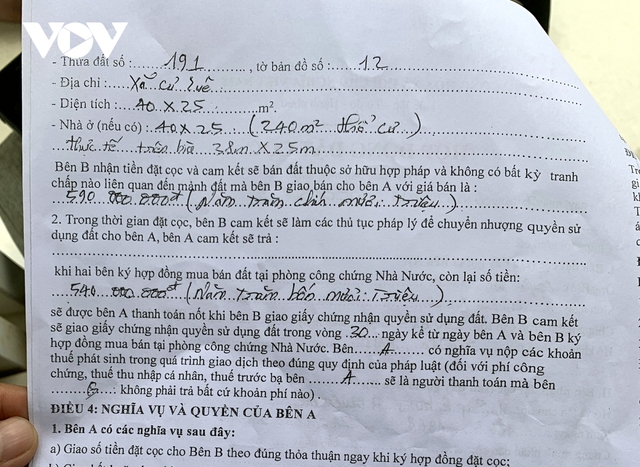 VOV
- Thửa đất số :......191............, tờ bản đồ số :......12......
- Địa chỉ :......Xã Cư Suê......
- Diện tích :......40 x 25......m².
- Nhà ở (nếu có) :..40 x 25....( 240m² thổ cư )......
thực tế trên bìa 38m x 25m
Bên B nhận tiền đặt cọc và cam kết sẽ bán đất thuộc sở hữu hợp pháp và không có bất kỳ tranh
chấp nào liên quan đến mảnh đất mà bên B giao bán cho bên A với giá bán là :
590 000 000đ ( Năm trăm chín mươi triệu )
2. Trong thời gian đặt cọc, bên B cam kết sẽ làm các thủ tục pháp lý để chuyển nhượng quyền sử
dụng đất cho bên A, bên A cam kết sẽ trả :
khi hai bên ký hợp đồng mua bán đất tại phòng công chứng Nhà Nước, còn lại số tiền:
540 000 000đ ( Năm trăm bốn mươi triệu )
sẽ được bên A thanh toán nốt khi bên B giao giấy chứng nhận quyền sử dụng đất. Bên B cam kết
sẽ giao giấy chứng nhận quyền sử dụng đất trong vòng .30... ngày kể từ ngày bên A và bên B ký
hợp đồng mua bán tại phòng công chứng Nhà Nước. Bên......A...... có nghĩa vụ nộp các khoản
thuế phát sinh trong quá trình giao dịch theo đúng quy định của pháp luật (đối với phí công
chứng, thuế thu nhập cá nhân, thuế trước bạ bên ......A...... sẽ là người thanh toán mà bên
......: không phải trả bất cứ khoản phí nào) .
ĐIỀU 4: NGHĨA VỤ VÀ QUYỀN CỦA BÊN A
1. Bên A có các nghĩa vụ sau đây:
a) Giao số tiền đặt cọc cho Bên B theo đúng thỏa thuận ngay khi ký hợp đồng đặt cọc;